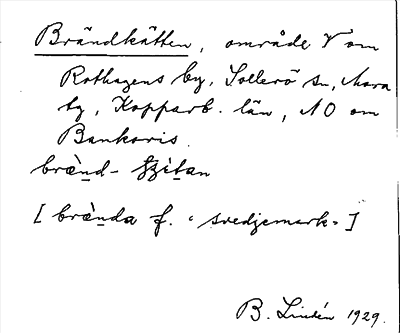 Brändkätten, område V om
Rothagens by, Sollerö sn, Mora
tg, Kopparb. län, NO om
Bankoris.
brènd-
[ brènda f. "svedjemark" ]
B. Lindén 1929.